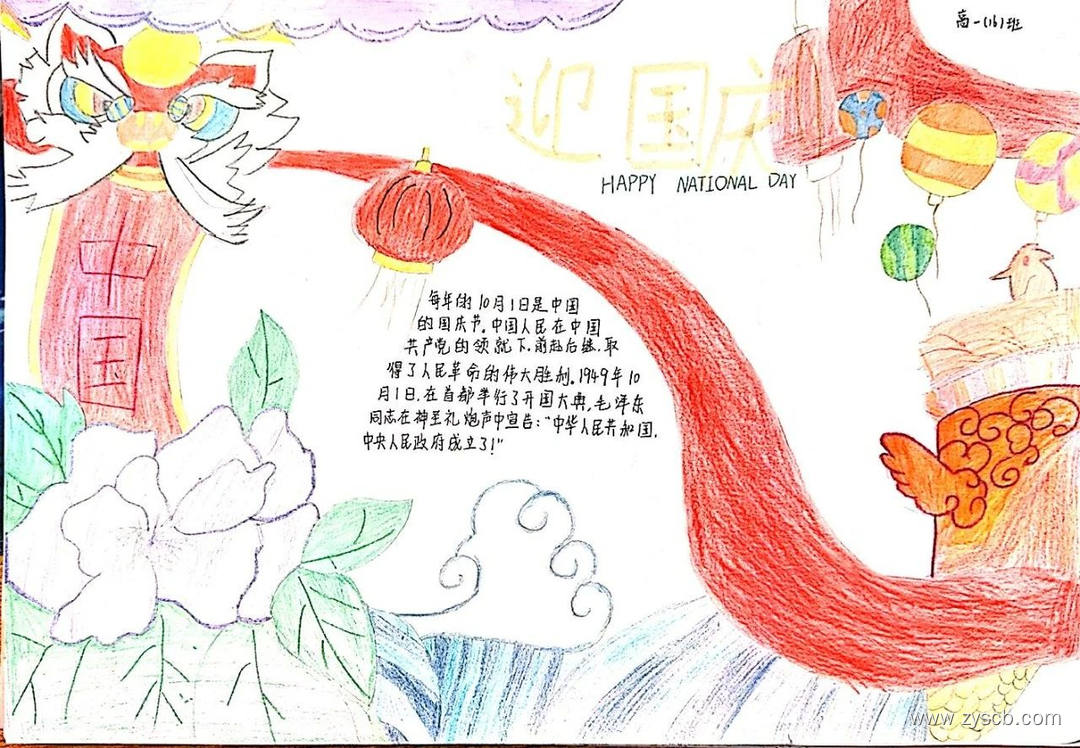 高一(16)班
迎国庆
HAPPY NATIONAL DAY
中国
每年的10月1日是中国
的国庆节。中国人民在中国
共产党的领就下,前赴后继,取
得了人民革命的伟大胜利。1949年10
月1日,在首都举行了开国大典,毛泽东
同志在神圣礼炮声中宣告:"中华人民共和国,
中央人民政府成立了!"
www.zyscb.com